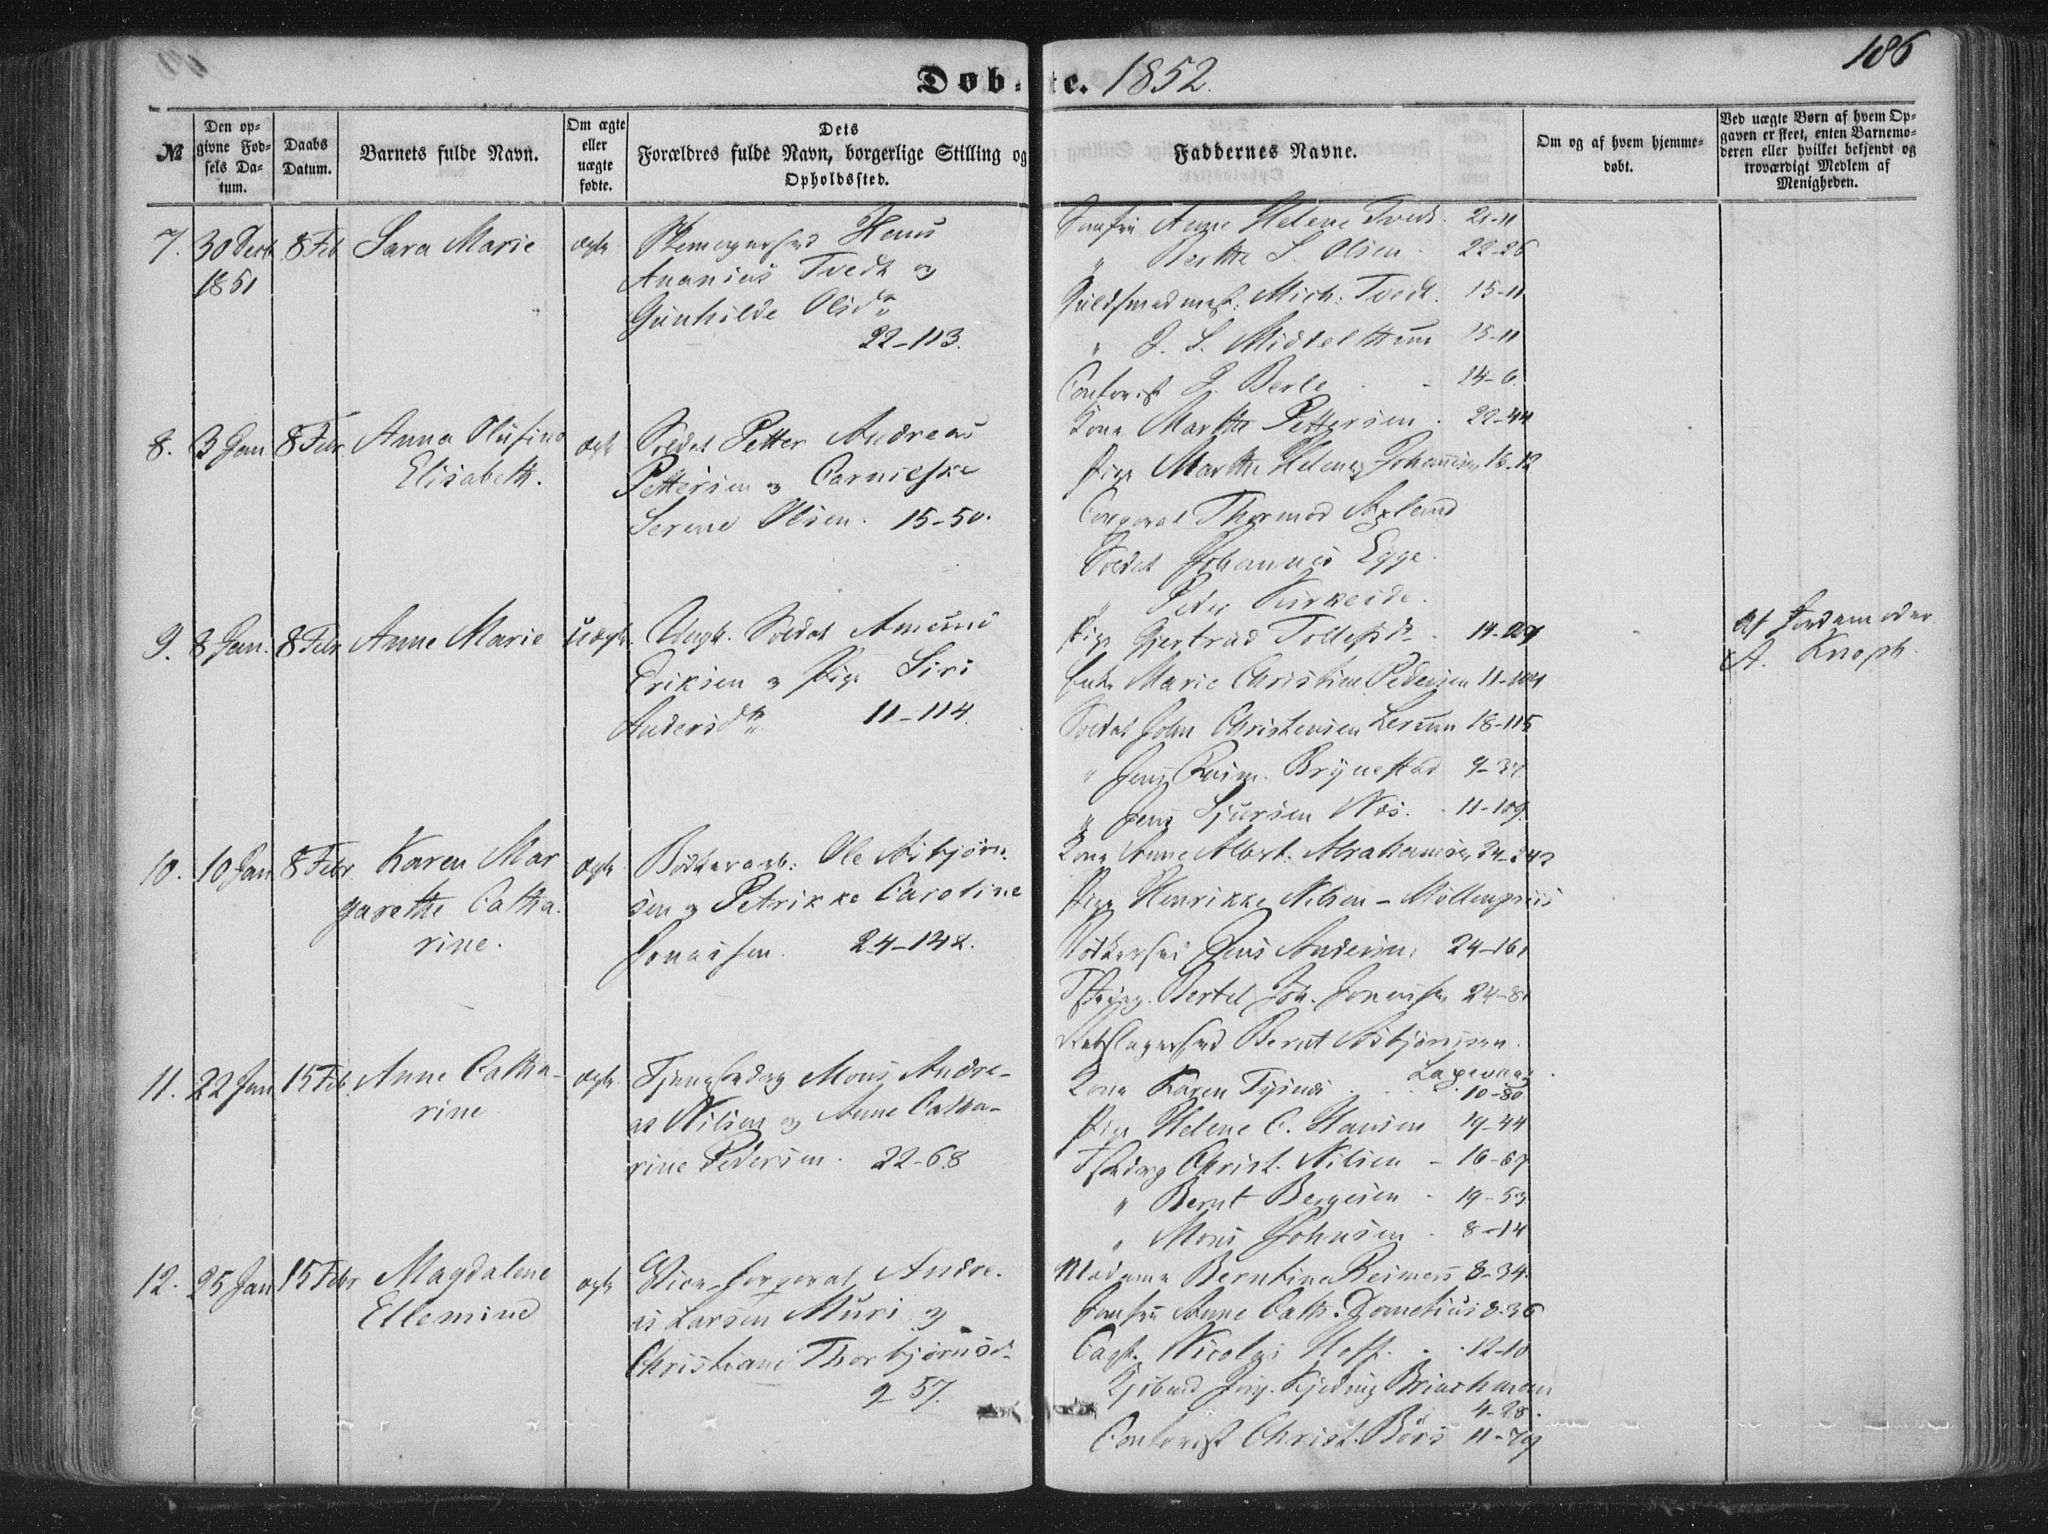 Døbte. 1852.
186
№
Den opgivne Fødsels Datum.
Daabs Datum.
Barnets fulde Navn.
Om ægte eller uægte fødte.
Dets Forældres fulde Navn, borgerlige Stilling og Opholdssted.
Faddernes Navne.
Om og af hvem hjemmedøbt.
Ved uægte Børn af hvem Opgaven er skeet, enten Barnemoderen eller hvilket bekjendt og troværdigt Medlem af Menigheden.
7. 30 Decb 8 Feb Sara Marie ægte
1851
Hans
Ananias Tvedt og
Gunhilde Olsd
22-113.
Jomfru Anne Helene Tvedt. 21-11
" Berthe S. Olsen. 22-26
Guldsmedmest. Mich. Tvedt. 15-11
" J. S. Middelthun 15-11
Contorist J. Berle 14-6.
8. 3 Jan 8 Febr Anna Olufine ægte
Elisabeth.
Soldat Petter Andreas
Pettersen og
Serene Olsen. 15-50.
Kone Marthe Pettersen. 22-44
Pige Marthe Helene Johannesen 18-12
Corporal Thormod
Soldat Johannes Egge.
" Peder Kirkeide.
9. 8 Jan. 8 Febr Anne Marie uægte.
Ungk. Soldat Amund
Eriksen og Pige Siri
Andersd 11-114.
Pige Gjertrud Tollefsd
Enke Marie Christine Pedersen 11-104
Soldat John Christensen Lerum 18-115
" Jens Rasm. Brynestad 9-37
" Jens Sjursen Næs. 11-109.
Af Jordemoder
A. Knoph.
10. 10 Jan 8 Febr Karen Mar ægte
garethe Catha
rine.
Bødkerarb: Ole Asbjørn
sen og Petrikke Caroline
Jonassen. 24-142.
Kone Anne Albert. Abrahamsen
Pige Henrikke Nilsen - Møllenpriis
Bødkersv Jens Andersen 24-161
Bertel Joh. Jonassen 24-81
Rebslagersvd Bernt Asbjørnsen.
11. 22 Jan 15 Feb Anne Catha- ægte.
rine
Mons Andre-
as Nilsen og Anne Catha-
rine Pedersen. 22-68
Kone Karen Tysnæs
10-80.
Pige Helene C. Hansen 19-44
Christ. Nilsen - 16-67
" Bernt Bergesen - 19-53
" Mons Johnsen - 8-14
12. 25 Jan 15 Febr Magdalene ægte
Ellemine
Vice-Corporal Andre-
as Larsen Muri og
Christiane Thorbjørnsd-
9-57.
Madame Berntine Reimers 8-34.
Jomfru Anne Cath. 8-36
Capt. Nicolai Hoff. 12-10
Kjøbmd
4-28.
Contorist Christ. Børs 11-79